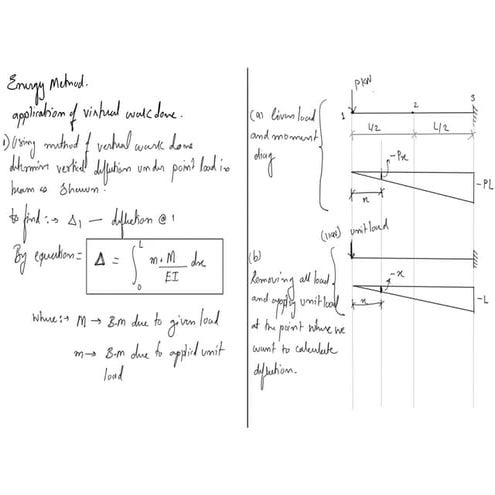 Energy Method.
application of virtual work done.
1) Using method of virtual work done
determine vertical deflection under point load in
beam as shown.
to find :→ Δ₁ — deflection @ 1
By equation = Δ = ∫₀ᴸ m·M/EI dx
where :→ M → B.M due to given load
m → B.M due to applied unit
load
P KN
1 2 3
(a) Given load
and moment
diag
L/2 L/2
-Px
x
-PL
(1KN) unit load
(b)
Removing all load
and apply unit load
at the point where we
want to calculate
deflection.
-x
x
-L